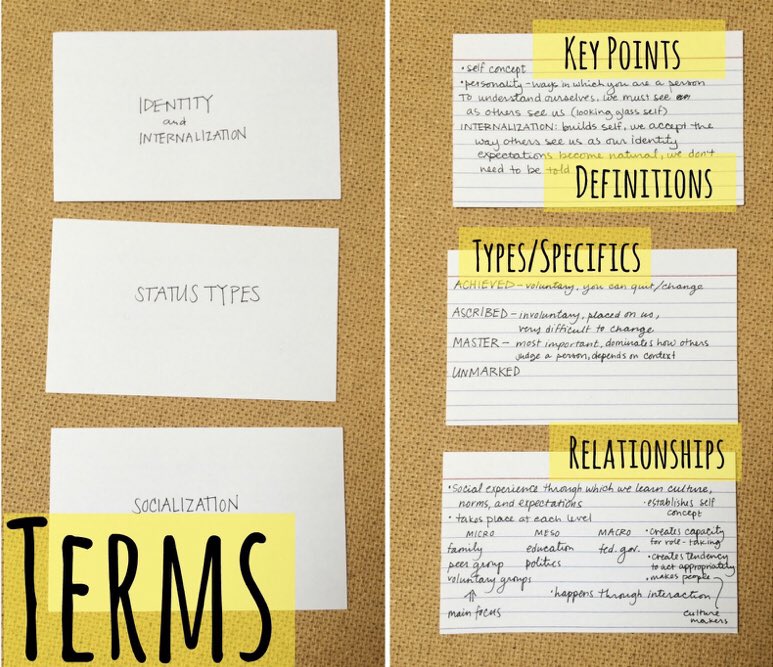 IDENTITY
and
INTERNALIZATION
STATUS TYPES
SOCIALIZATION
TERMS
KEY POINTS
• self concept
• personality - ways in which you are a person
To understand ourselves, we must see
as others see us (looking glass self)
INTERNALIZATION: builds self, we accept the
way others see us as our identity
expectations become natural, we don't
need to be told
DEFINITIONS
TYPES/SPECIFICS
ACHIEVED - voluntary, you can quit/change
ASCRIBED - involuntary, placed on us,
very difficult to change
MASTER - most important, dominates how others
judge a person, depends on context
UNMARKED
RELATIONSHIPS
• Social experience through which we learn culture,
norms, and expectations
• establishes self
concept
• takes place at each level
MICRO MESO MACRO
family education fed. gov.
peer group politics
voluntary groups
⇑
main focus
• creates capacity
for role-taking
• creates tendency
to act appropriately
• makes people
culture
makers
• happens through interaction